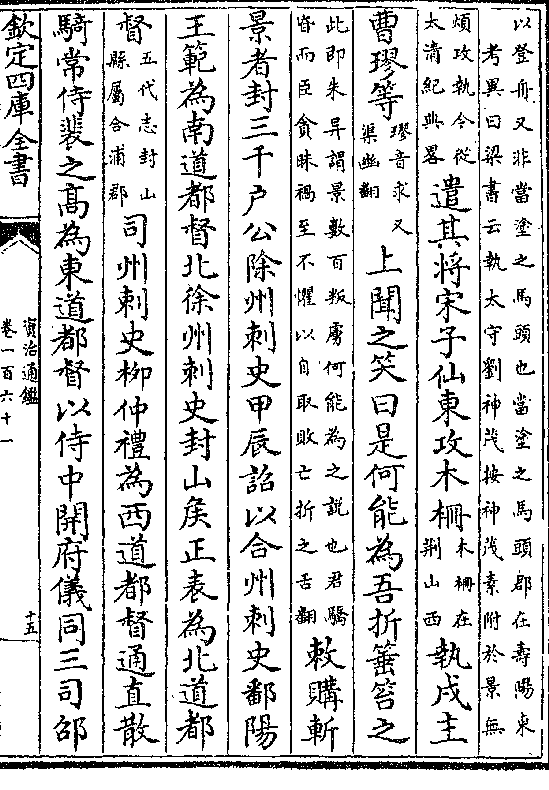 以登舟又非當塗之馬頭也當塗之馬頭郡在壽陽東
考異曰梁書云執太守劉神茂按神茂素附於景無
煩攻執今從
太清紀典畧
遣其將宋子仙東攻木柵
木柵在
荆山西
執戍主
曹璆等
璆音求又
渠幽翻
上聞之笑曰是何能為吾折箠笞之
此即朱异謂景數百叛虜何能為之説也君驕
昏而臣貪昧禍至不懼以自取敗亡折之舌翻
敕購斬
景者封三千户公除州刺史甲辰詔以合州刺史鄱陽
王範為南道都督北徐州刺史封山侯正表為北道都
督
五代志封山
縣屬合浦郡
司州刺史柳仲禮為西道都督通直散
騎常侍裴之髙為東道都督以侍中開府儀同三司邵
欽定四庫全書
資治通鑑
卷一百六十一
十五